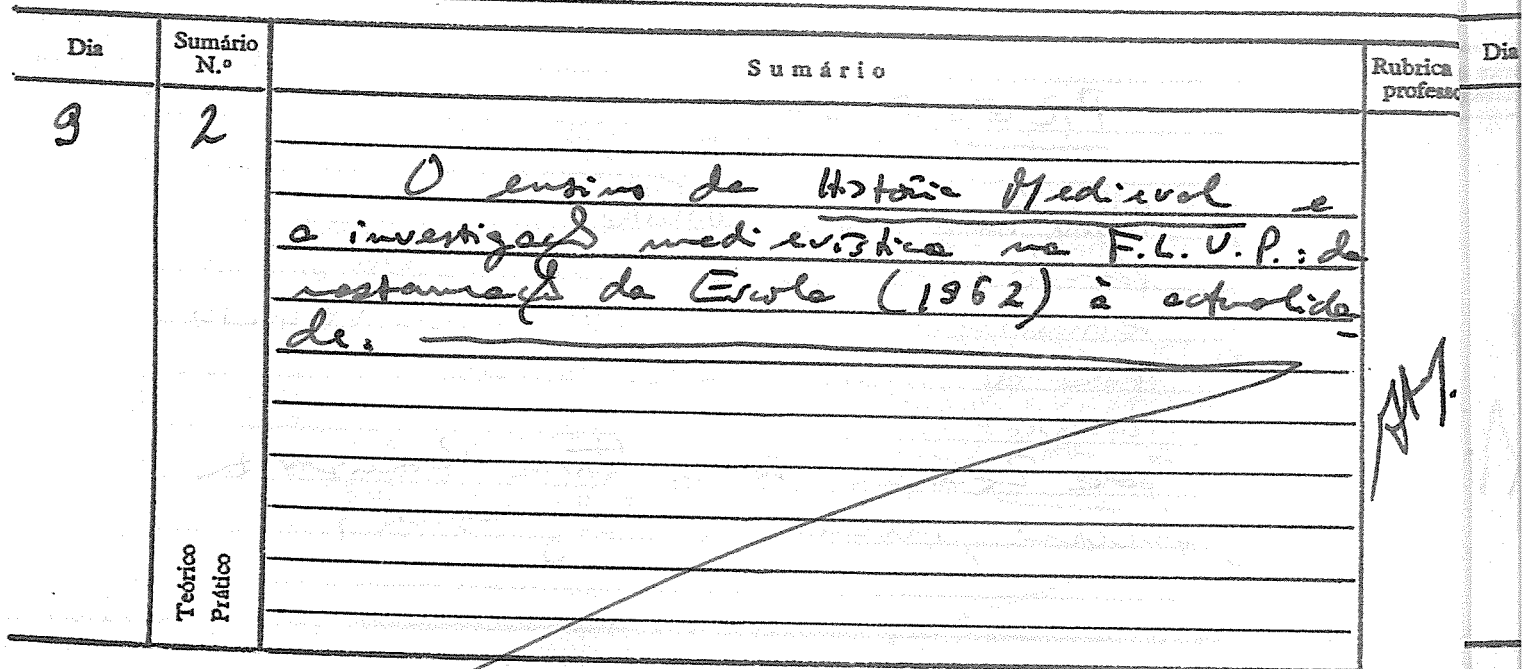 Dia Sumário N.º Sumário Rubrica professo Dia
9 2
O ensino da História Medieval e
a investigação medievística na F.L.U.P.: da
restauração da Escola (1962) à actualida
de.
Teórico
Prático